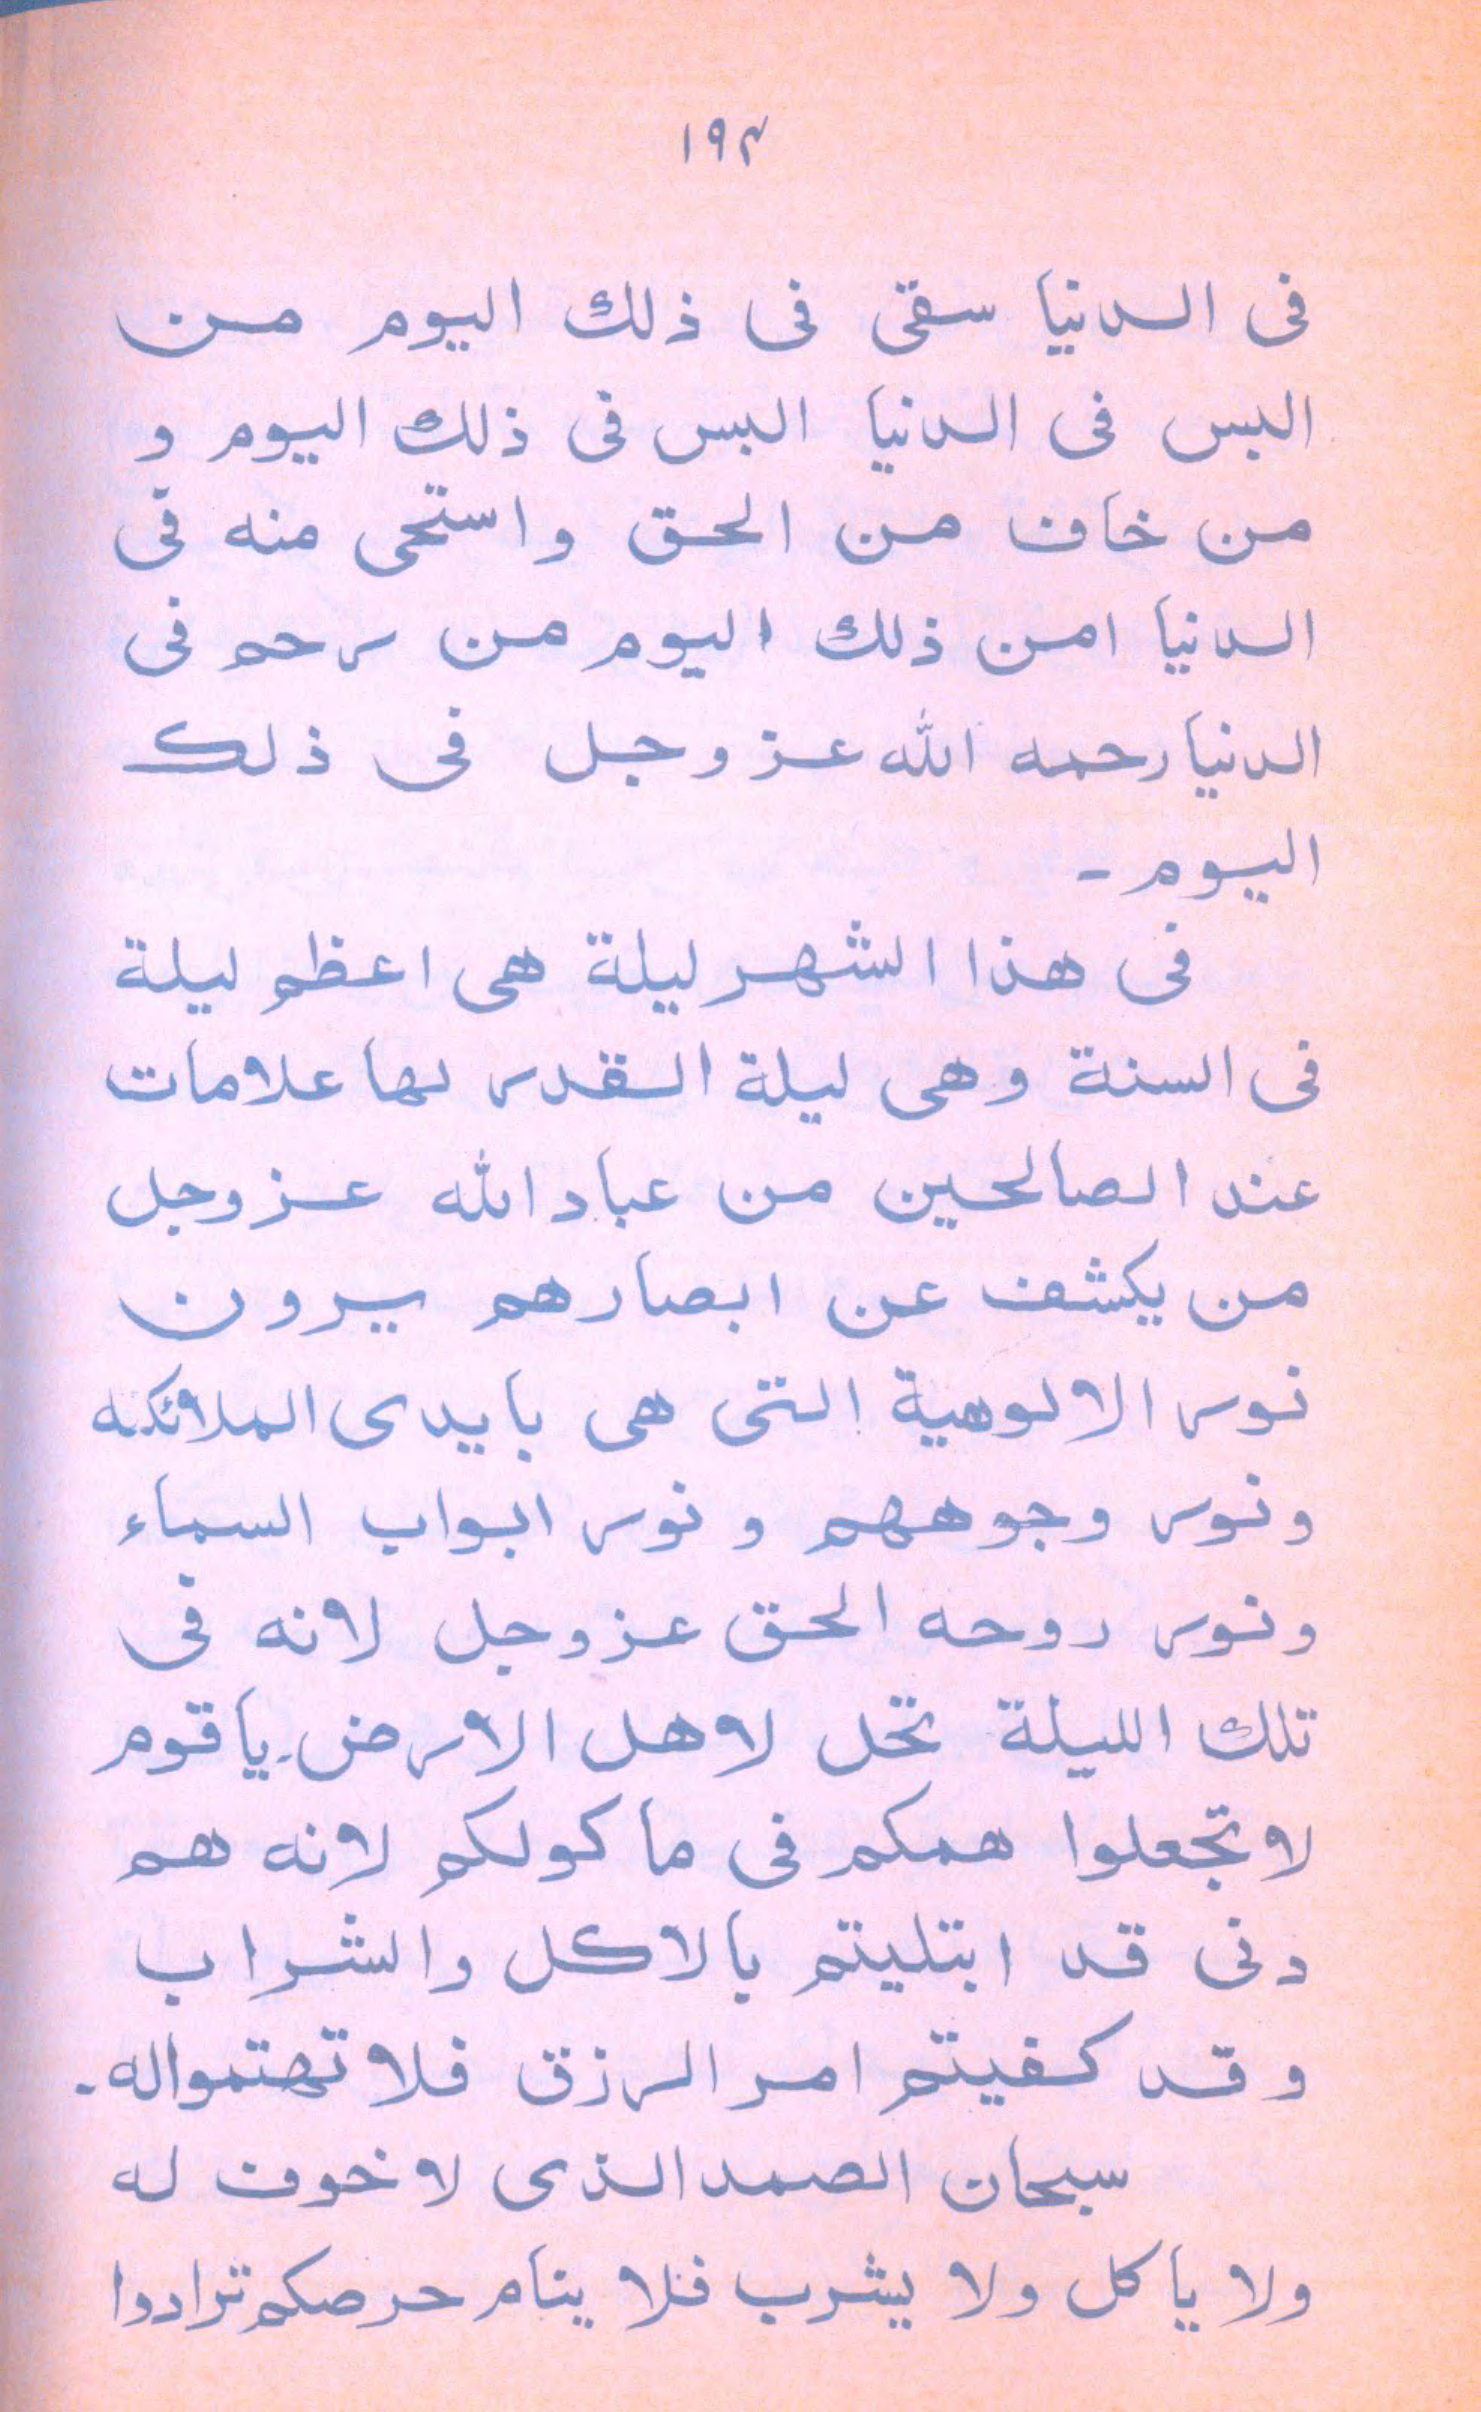 ۱۹۴
فى الدنيا سقى فى ذلك اليوم من
البس فى الدنيا البس فى ذلك اليوم و
من خاف من الحق واستحى منه فى
الدنيا امن ذلك اليوم من رحم فى
الدنيا رحمه الله عز وجل فى ذلك
اليوم -
فى هذا الشهر ليلة هى اعظم ليلة
فى السنة وهى ليلة القدر لها علامات
عند الصالحين من عباد الله عز وجل
من يكشف عن ابصارهم يرون
نور الالوهية التى هى بايدى الملائكه
ونور وجوههم و نور ابواب السماء
ونور روحه الحق عز وجل لانه فى
تلك الليلة تخل لاهل الارض. يا قوم
لا تجعلوا همكم فى ماكولكم لانه هم
دنى قد ابتليتم بالاكل والشراب
وقد كفيتم امر الرزق فلا تهتمواله.
سبحان الصمد الذى لا خوف له
ولا ياكل ولا يشرب فلا ينام حرصكم ترادوا